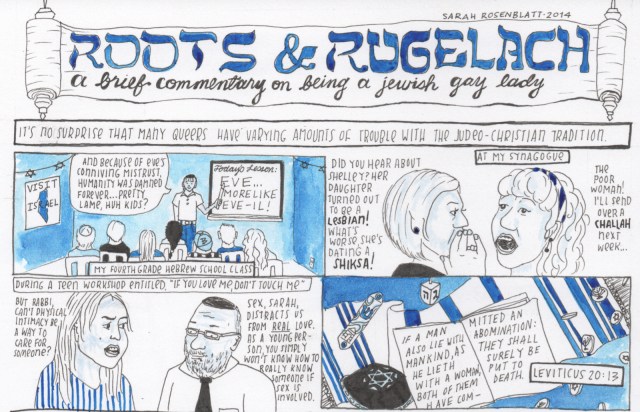 SARAH ROSENBLATT - 2014
ROOTS & RUGELACH
a brief commentary on being a jewish gay lady
IT'S NO SURPRISE THAT MANY QUEERS HAVE VARYING AMOUNTS OF TROUBLE WITH THE JUDEO-CHRISTIAN TRADITION.
VISIT
ISRAEL
AND BECAUSE OF EVE'S
CONNIVING MISTRUST,
HUMANITY WAS DAMNED
FOREVER...PRETTY
LAME, HUH KIDS?
Today's Lesson:
EVE...
MORE LIKE
EVE-IL!
MY FOURTH GRADE HEBREW SCHOOL CLASS
AT MY SYNAGOGUE
DID YOU HEAR ABOUT
SHELLEY? HER
DAUGHTER
TURNED OUT
TO BE A
LESBIAN!
WHAT'S
WORSE, SHE'S
DATING A
SHIKSA!
THE
POOR
WOMAN!
I'LL SEND
OVER A
CHALLAH
NEXT
WEEK...
DURING A TEEN WORKSHOP ENTITLED, "IF YOU LOVE ME, DON'T TOUCH ME"
BUT RABBI,
CAN'T PHYSICAL
INTIMACY BE
A WAY TO
CARE FOR
SOMEONE?
SEX, SARAH,
DISTRACTS US
FROM REAL LOVE.
AS A YOUNG PER-
SON, YOU SIMPLY
WON'T KNOW HOW TO
REALLY KNOW
SOMEONE IF
SEX IS
INVOLVED.
IF A MAN
ALSO LIE WITH
MANKIND, AS
HE LIETH
WITH A WOMAN,
BOTH OF THEM
HAVE COM-
MITTED AN
ABOMINATION:
THEY SHALL
SURELY BE
PUT TO
DEATH
LEVITICUS 20:13